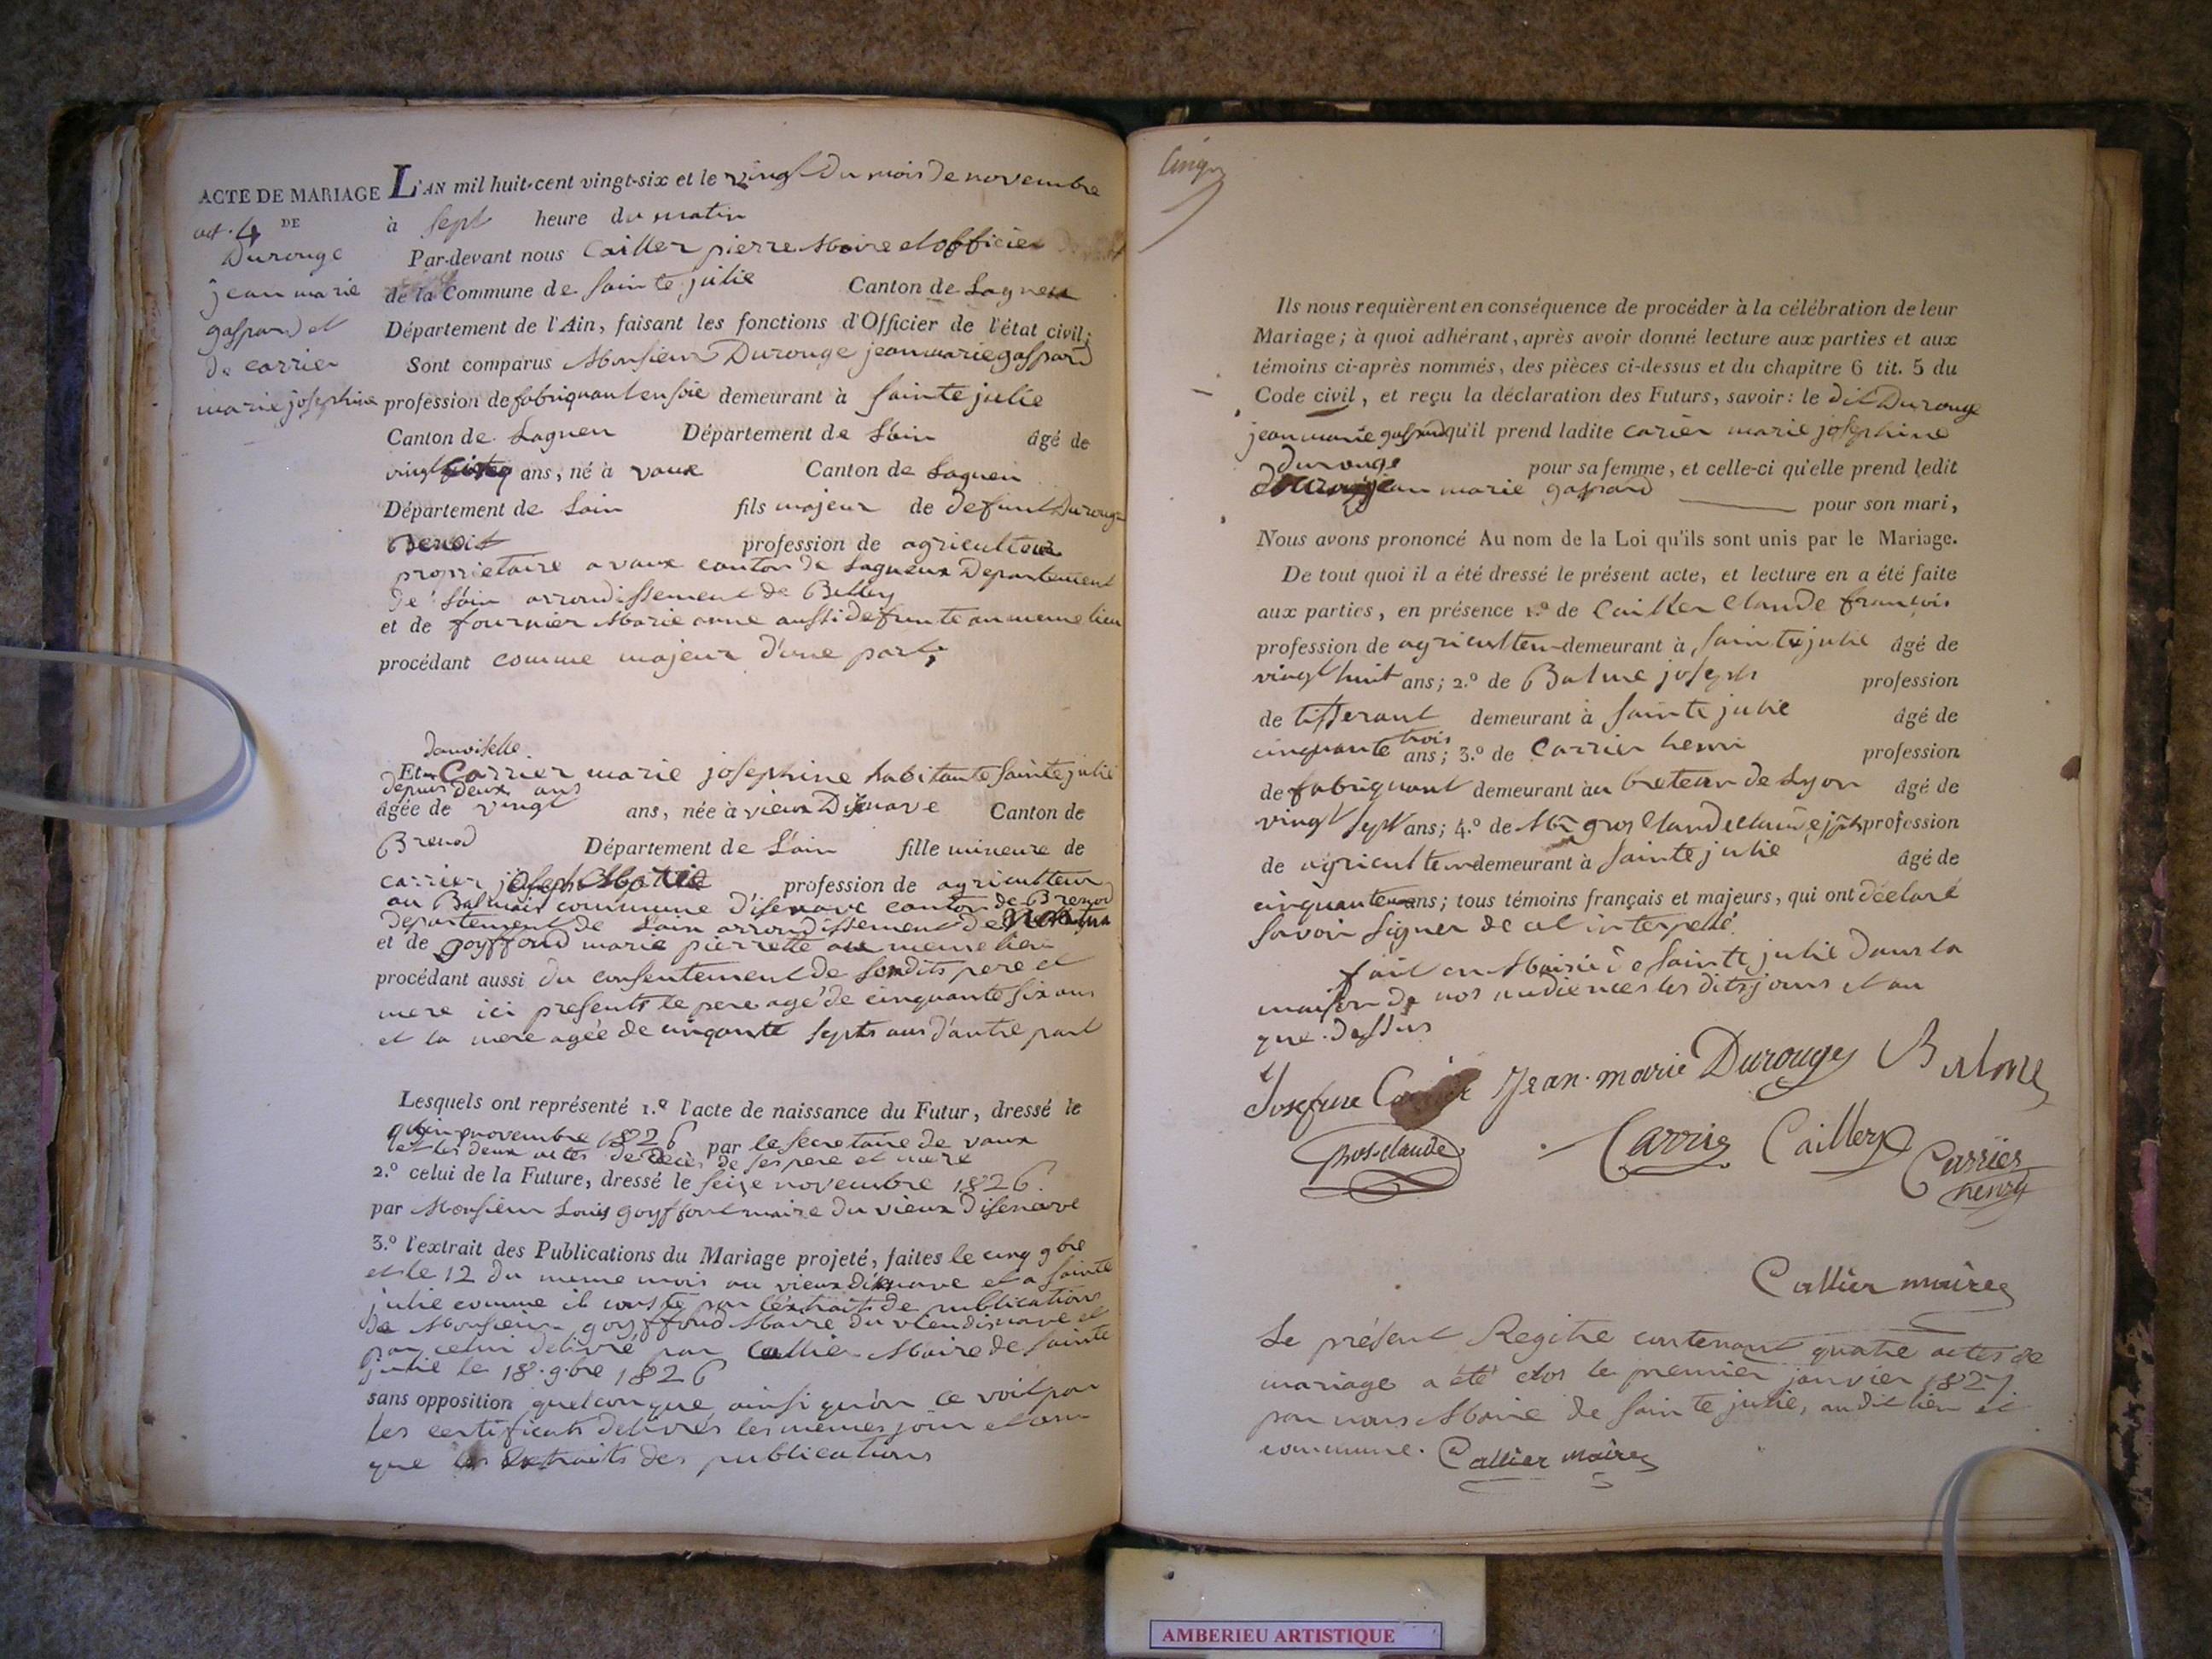 ACTE DE MARIAGE
DE
act. 4
Durouge
jean marie
gaspard et
de carrier
marie josephine
L'AN mil huit-cent vingt-six et le vingt du mois de novembre
à sept heure du matin
Par-devant nous Cailler pierre Maire et officier
de la Commune de Sainte julie Canton de Lagneu
Département de l'Ain, faisant les fonctions d'Officier de l'état civil;
Sont comparus Monsieur Durouge jean marie gaspard
profession de fabriquant en soie demeurant à Sainte julie
Canton de Lagneu Département de L'ain âgé de
vingt ans, né à vaux Canton de Lagneu
Département de Lain fils majeur de defunt Durouge
Benoit profession de agriculteur
proprietaire a vaux canton de Lagneux Departement
de L'ain arrondissement de Belley
et de fournier Marie anne aussi defunte au meme lieu
procédant comme majeur d'une part;
demoiselle
Et Carrier marie josephine habitante Sainte julie
depuis deux ans
âgée de vingt ans, née à vieux Disenave Canton de
Brenod Département de L'ain fille mineure de
carrier joseph Marie profession de agriculteur
au Balmais commune d'isenave canton de Brenod
departement de Lain arrondissement de Nantua
et de goyffond marie pierrette au meme lieu
procédant aussi du consentement de sesdits pere et
mere ici presents le pere agé de cinquante six ans
et la mere agée de cinqante septs ans d'autre part
Lesquels ont représenté 1.º l'acte de naissance du Futur, dressé le
novembre 1826 par le secretaire de vaux
et les deux actes de deces de ses pere et mere
2.º celui de la Future, dressé le seize novembre 1826.
par Monsieur Louis goyffont maire du vieux disenave
3.º l'extrait des Publications du Mariage projeté, faites le cinq 9bre
et le 12 du meme mois au vieux disenave et a Sainte
julie comme il conste par l'extrait de publications
de Monsieur goyffond Maire du vieu disenave et
par celui delivré par Callier Maire de Sainte
julie le 18. 9.bre 1826
sans opposition quelconque ainsi qu'on le voit par
les certificats delivrés les mêmes jour et an
que les Extraits des publications
Cinq
Ils nous requièrent en conséquence de procéder à la célébration de leur
Mariage; à quoi adhérant, après avoir donné lecture aux parties et aux
témoins ci-après nommés, des pièces ci-dessus et du chapitre 6 tit. 5 du
Code civil, et reçu la déclaration des Futurs, savoir: le dit Durouge
jean marie gaspard qu'il prend ladite carier marie josephine
durouge pour sa femme, et celle-ci qu'elle prend ledit
jean marie gaspard pour son mari,
Nous avons prononcé Au nom de la Loi qu'ils sont unis par le Mariage.
De tout quoi il a été dressé le présent acte, et lecture en a été faite
aux parties, en présence 1.º de Cailler Claude françois
profession de agriculteur demeurant à Sainte julie âgé de
vingt huit ans; 2.º de Balme joseph profession
de tisserant demeurant à Sainte julie âgé de
cinquante trois ans; 3.º de Carrier henri profession
de fabriquant demeurant au breteau de Lyon âgé de
vingt sept ans; 4.º de Mr gros Claude profession
de agriculteur demeurant à Sainte julie âgé de
cinquante ans; tous témoins français et majeurs, qui ont déclaré
savoir signer de ce interpellé
fait en Mairie de Sainte julie dans la
maison de nos audiences les dits jours et an
que dessus
Josephine Carrier Jean-marie Durouge Balme
Gros-claude Carrier Cailler Carrier
henry
Callier maire
Le présent Regitre contenant quatre actes de
mariage a été clos le premier janvier 1827
par nous Maire de Sainte julie, au dit lieu et
commune. Callier maire
AMBERIEU ARTISTIQUE